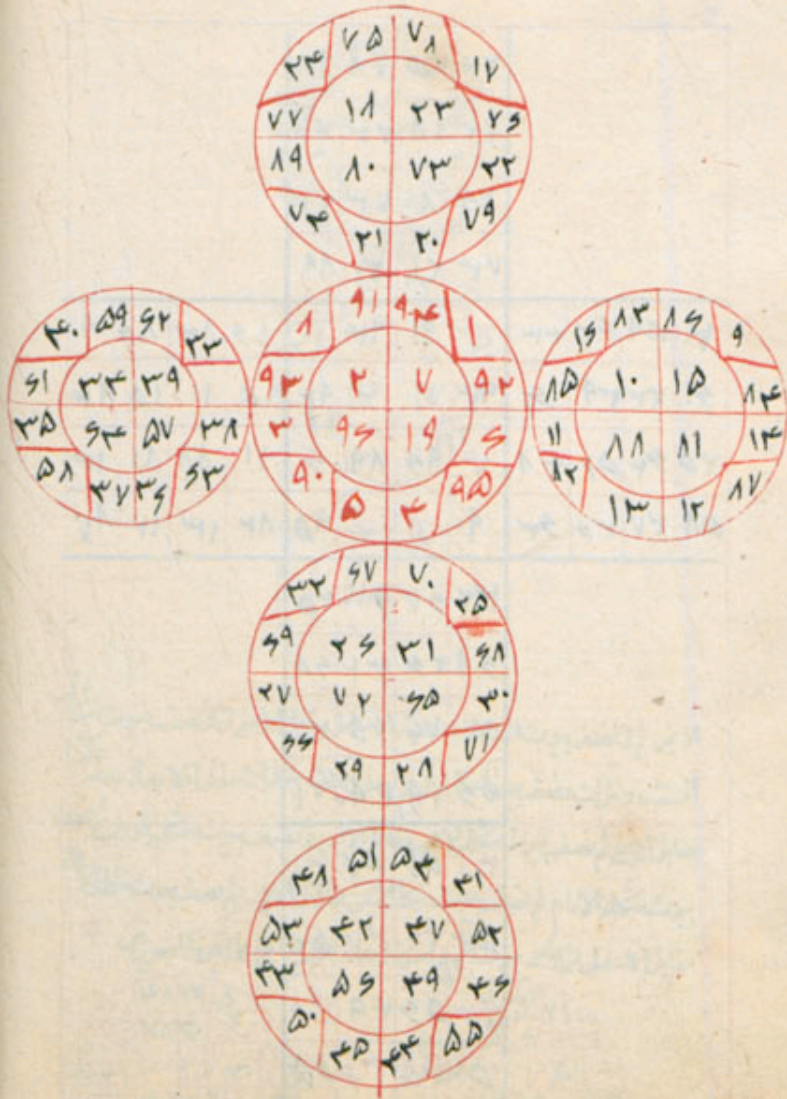 ۲۴ ۷۵ ۷۸ ۱۷
۷۷ ۱۸ ۲۳ ۷۶
۱۹ ۸۰ ۷۳ ۲۲
۷۴ ۲۱ ۲۰ ۷۹
۴۰ ۵۹ ۶۲ ۳۳
۶۱ ۳۴ ۳۹
۳۵ ۶۴ ۵۷ ۳۸
۵۸ ۳۷ ۳۶ ۶۳
۸ ۹۱ ۹۴ ۱
۹۳ ۲ ۷ ۹۲
۳ ۹۶ ۸۹ ۶
۹۰ ۵ ۴ ۹۵
۱۶ ۸۳ ۸۶ ۹
۸۵ ۱۰ ۱۵ ۸۴
۱۱ ۸۸ ۸۱ ۱۴
۸۲ ۱۳ ۱۲ ۸۷
۳۲ ۶۷ ۷۰ ۲۵
۶۹ ۲۶ ۳۱ ۶۸
۲۷ ۷۲ ۶۵ ۳۰
۶۶ ۲۹ ۲۸ ۷۱
۴۸ ۵۱ ۵۴ ۴۱
۵۳ ۴۲ ۴۷ ۵۲
۴۳ ۵۶ ۴۹ ۴۶
۵۰ ۴۵ ۴۴ ۵۵